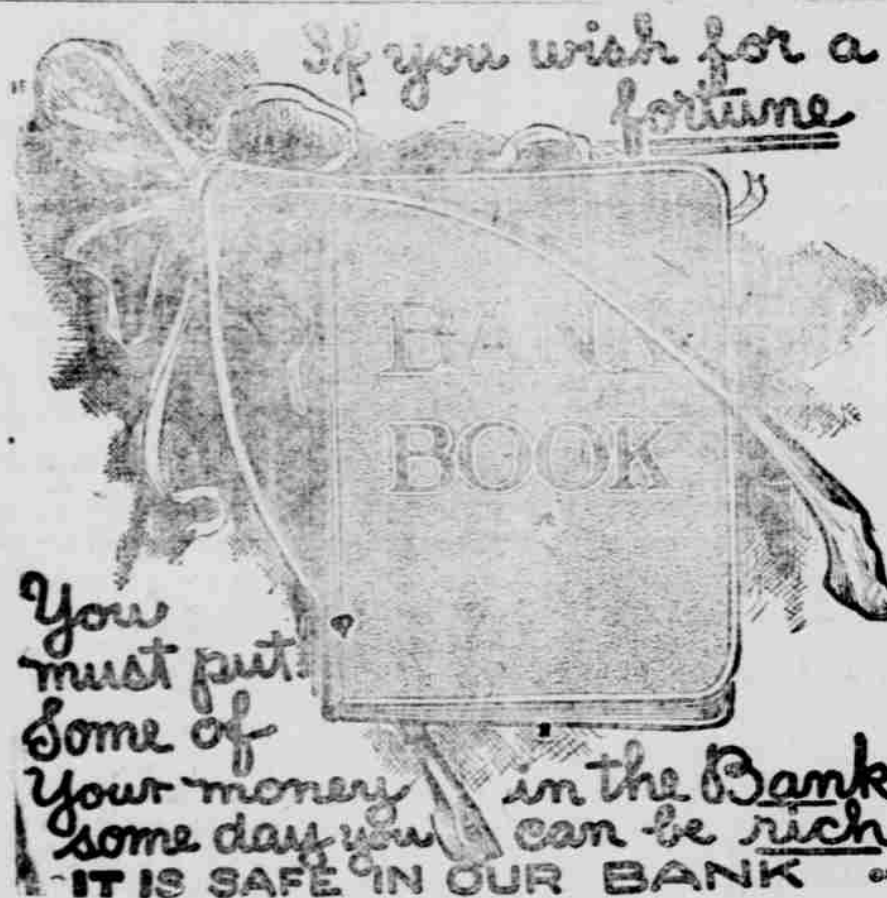 If you wish for a
fortune
BANK
BOOK
You
must put
Some of
Your money in the Bank
some day you can be rich
IT IS SAFE IN OUR BANK